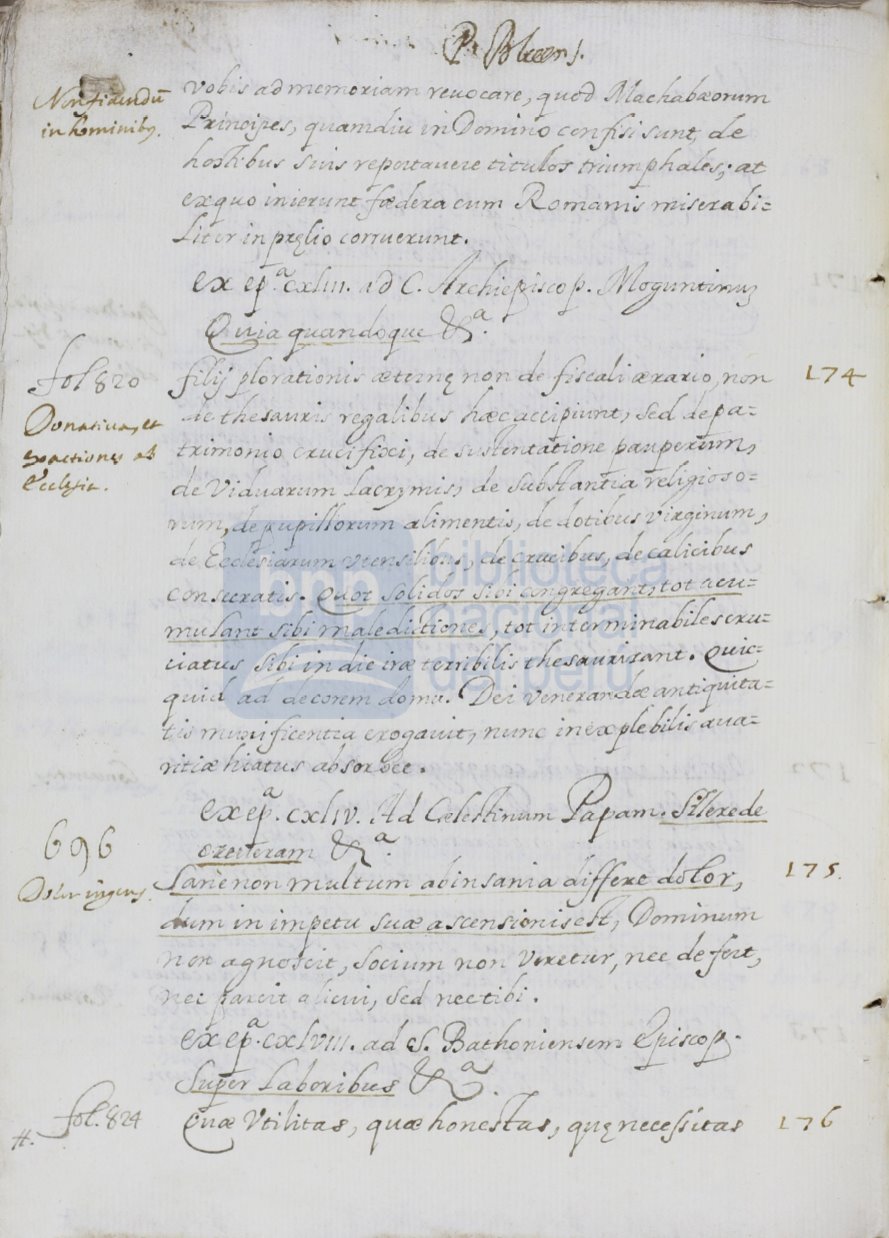 P. Blesens.
Non fidendũ
in hominibꝰ.
vobis ad memoriam reuocare, quod Machabæorum
Principes, quamdiu in Domino confisi sunt, de
hostibus suis reportauere titulos triumphales; at
ex quo inierunt fœdera cum Romanis miserabi=
liter in pręlio corruerunt.
Ex epª. cxliii. ad C. Archiepiscop. Moguntinuʒ
Quia quandoque &ª.
fol 820
Donatiua, et
exactiones ab
Ecclesia.
filij plorationis æternę non de fiscali ærario, non
de thesauris regalibus hæc accipiunt, sed de pa=
trimonio crucifixi, de sustentatione pauperum,
de Viduarum lacrymis, de substantia religioso=
rum, de pupillorum alimentis, de dotibus virginum,
de Ecclesiarum vtensilibus, de crucibus, de calicibus
consecratis. Quot solidos sibi congregant, tot acu=
mulant sibi maledictiones, tot interminabiles cru=
ciatus sibi in die iræ terribilis thesaurizant. Quic=
quid ad decorem domus Dei venerandæ antiquita=
tis munificentia erogauit, nunc inexplebilis aua=
ritiæ hiatus absorbet.
174
Ex epª. cxliv. Ad Cælestinum Papam. Sillerede
creueram &ª.
696
Dolor ingens.
Sane non multum ab insania differt dolor,
dum in impetu suæ ascensionis est, Dominum
non agnoscit, socium non veretur, nec defert,
nec parcit alicui, sed nec tibi.
175.
Ex epª. cxlviii. ad S. Bathoniensem Episcop.
Super Laboribus &ª.
#. fol. 824
Quæ Vtilitas, quæ honestas, quę necessitas
176
biblioteca
nacional
del perú
bnp